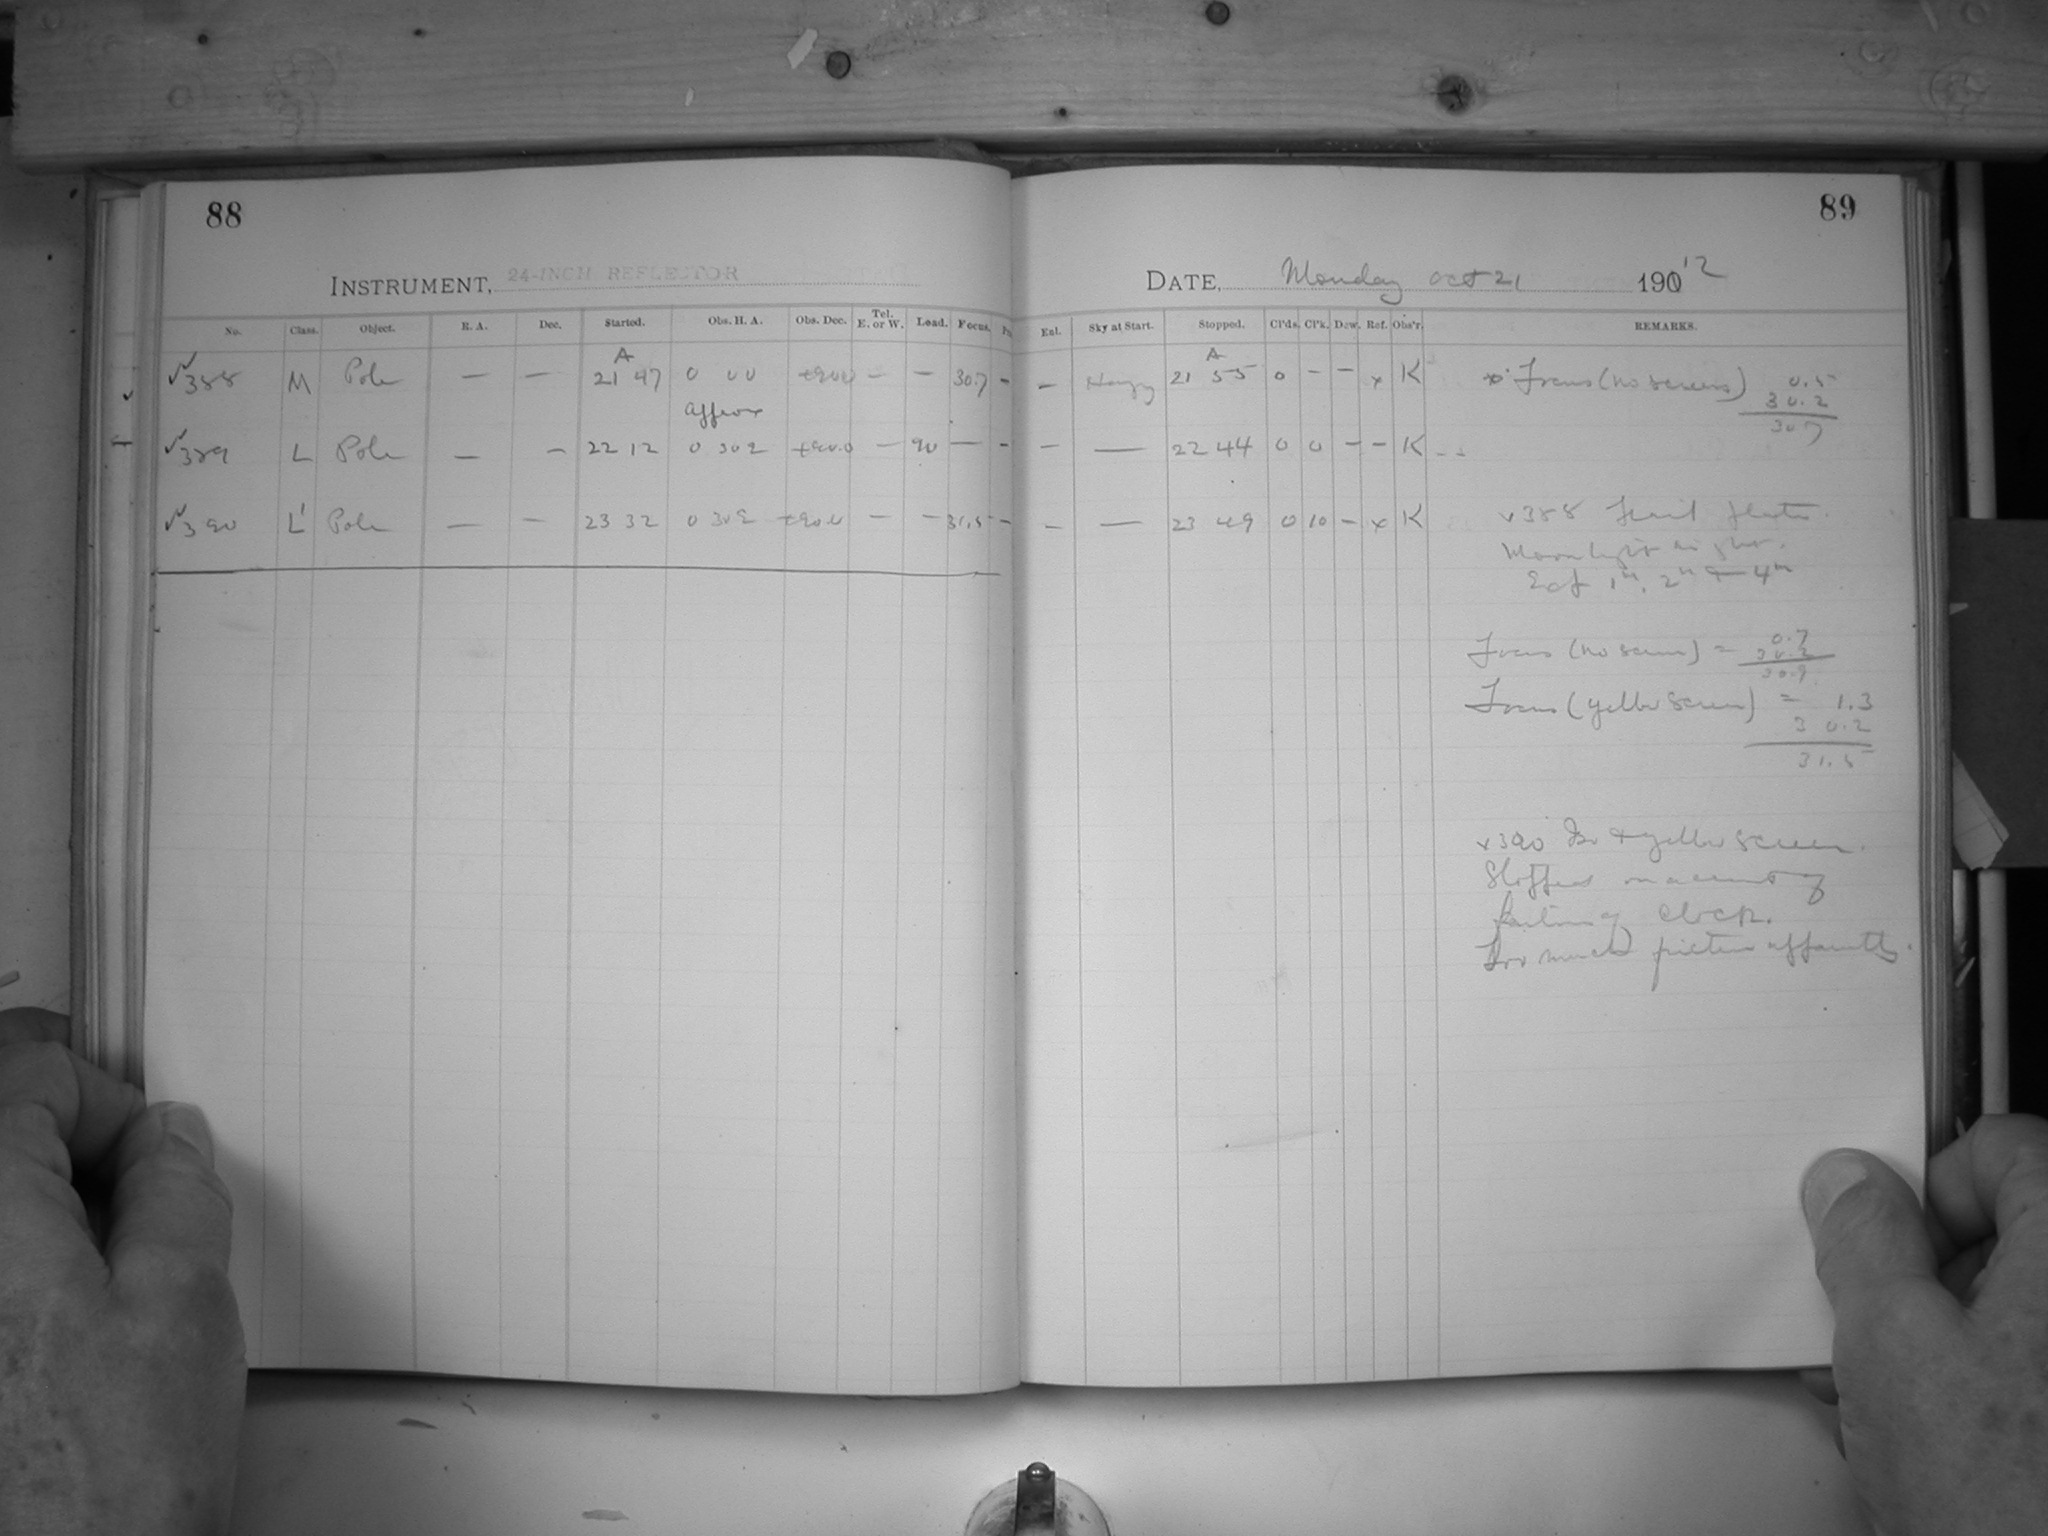 88
INSTRUMENT, 24-INCH REFLECTOR
No. Class. Object. R. A. Dec. Started. Obs. H. A. Obs. Dec. Tel. E. or W. Load. Focus.
A
388 M Pole — — 21 47 0 00 +90.0 — — 30.7 -
approx
389 L Pole — — 22 12 0 30 2 +90.0 — 90 — -
390 L' Pole — — 23 32 0 30 2 +90.0 — — 31.5 -
89
DATE, Monday Oct 21 190 '12
Ent. Sky at Start. Stopped. Cl'ds. Cl'k. Dew. Ref. Obs'r. REMARKS.
A
- Hazy 21 55 0 - - x K
Focus (no screens) 0.5
30.2
30.7
- — 22 44 0 0 - - K
- — 23 49 0 10 - x K
x388
Moonlight
1m, 2m & 4m
Focus (no screen) = 0.7
30.2
30.9
Focus (yellow screen) = 1.3
30.2
31.5
x390 Iso & yellow screen.
Stopped on account of
failing clock.
Too much friction apparently.